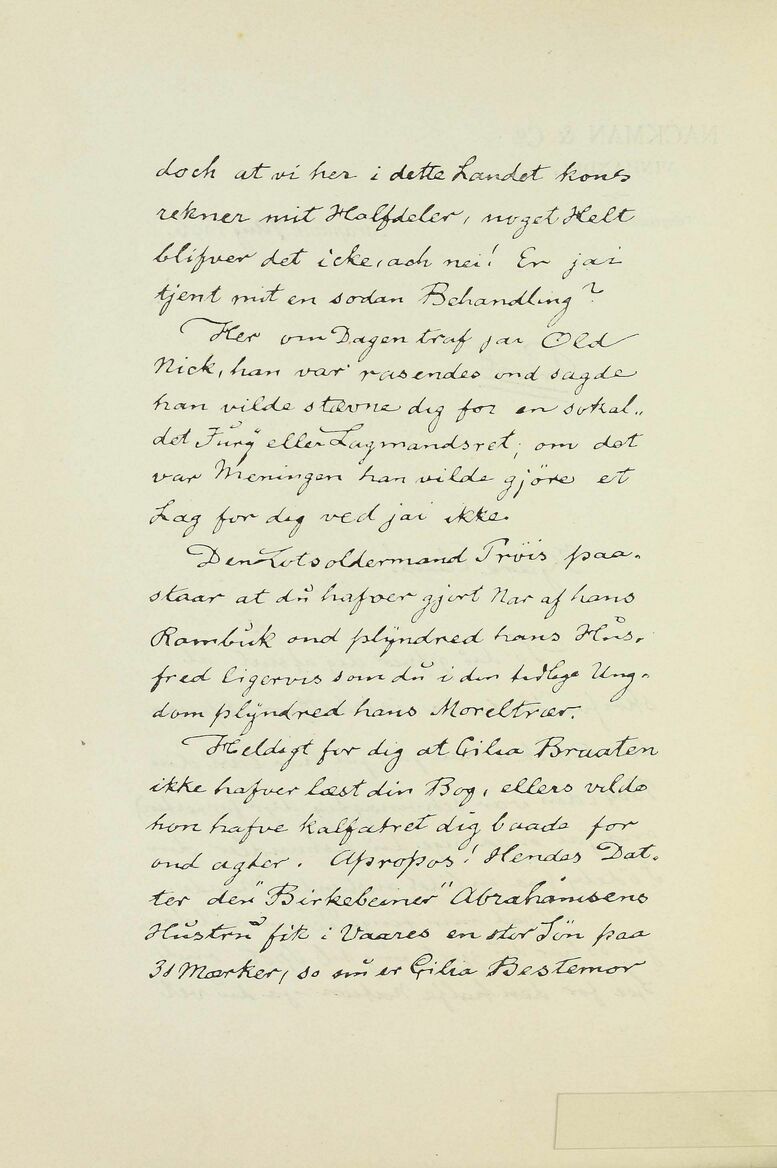 doch at vi her i dette Landet kons
rekner mit Halfdeler, noget Helt
blifver det icke, ach nei! Er jai
tjent mit en sodan Behandling?
Her om Dagen traf jai Old
Nick, han var rasendes ond sagde
han vilde stævne dig for en sokal„
det Jury eller Lagmandsret; om det
var Meningen han vilde gjöre et
Lag for dig ved jai ikke.
Den Lotsoldermand Tröis paa-
staar at du hafver gjort Nar af hans
Rambuk ond plyndred hans Hus,
fred ligervis som du i din tidlige Ung-
dom plyndred hans Moreltrær.
Heldigt for dig at Cilia Braaten
ikke hafver læst din Bog, ellers vilde
hon hafve kalfatret dig baade for
ond agter. Apropos! Hendes Dat-
ter den "Birkebeiner" Abrahamsens
Hustru fik i Vaares en stor Sön paa
31 Mærker, so nu er Cilia Bestemor